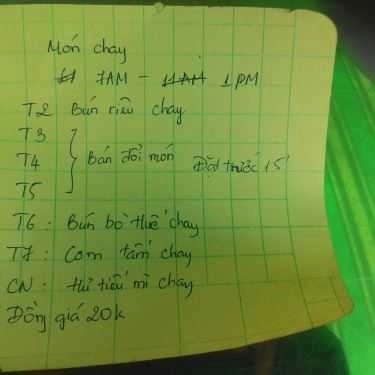 Món chay
7AM - 11AM 1PM
T2 Bún riêu chay
T3
T4 } Bán đổi món Đặt trước 15'
T5
T6 : Bún bò Huế chay
T7 : Cơm tấm chay
CN : Hủ tiếu mì chay
Đồng giá 20k